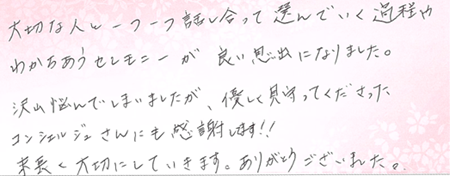 大切な人と一つ一つ話し合って選んでいく過程や
わかちあうセレモニーが良い思い出になりました。
沢山悩んでしまいましたが、優しく見守ってくださった
コンシェルジュさんにも感謝します!!
末長く大切にしていきます。ありがとうございました。